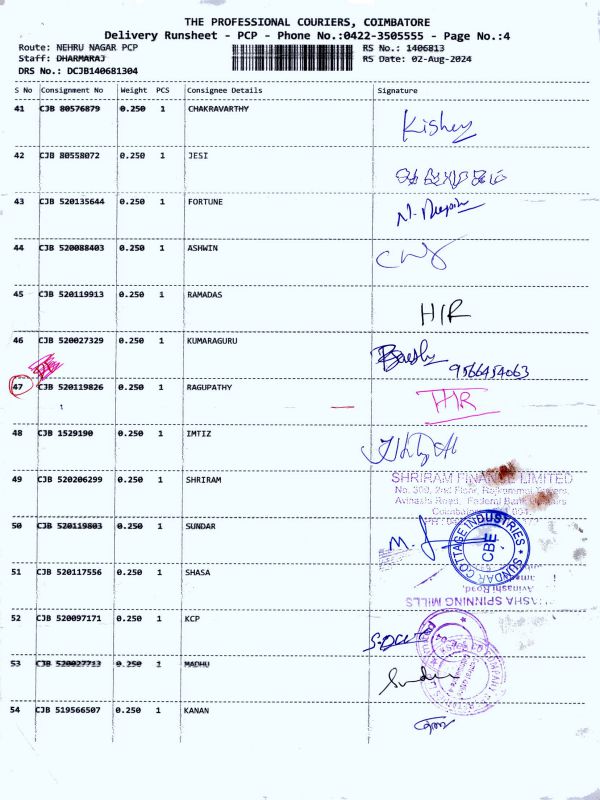 THE PROFESSIONAL COURIERS, COIMBATORE
Delivery Runsheet - PCP - Phone No.:0422-3505555 - Page No.:4
Route: NEHRU NAGAR PCP RS No.: 1406813
Staff: DHARMARAJ RS Date: 02-Aug-2024
DRS No.: DCJB140681304
S No Consignment No Weight PCS Consignee Details Signature
41 CJB 80576879 0.250 1 CHAKRAVARTHY Kishey
42 CJB 80558072 0.250 1 JESI
43 CJB 520135644 0.250 1 FORTUNE
44 CJB 520088403 0.250 1 ASHWIN
45 CJB 520119913 0.250 1 RAMADAS H/R
46 CJB 520027329 0.250 1 KUMARAGURU 9566454063
47 CJB 520119826 0.250 1 RAGUPATHY
48 CJB 1529190 0.250 1 IMTIZ
49 CJB 520206299 0.250 1 SHRIRAM SHRIRAM FINANCE LIMITED
No. 300, 2nd Floor,
Avinashi Road, Federal Bank
50 CJB 520119803 0.250 1 SUNDAR SUNDAR COTTAGE INDUSTRIES CBE
51 CJB 520117556 0.250 1 SHASA
Avinashi Road,
SPINNING MILLS
52 CJB 520097171 0.250 1 KCP
53 CJB 520027713 0.250 1 MADHU
54 CJB 519566507 0.250 1 KANAN